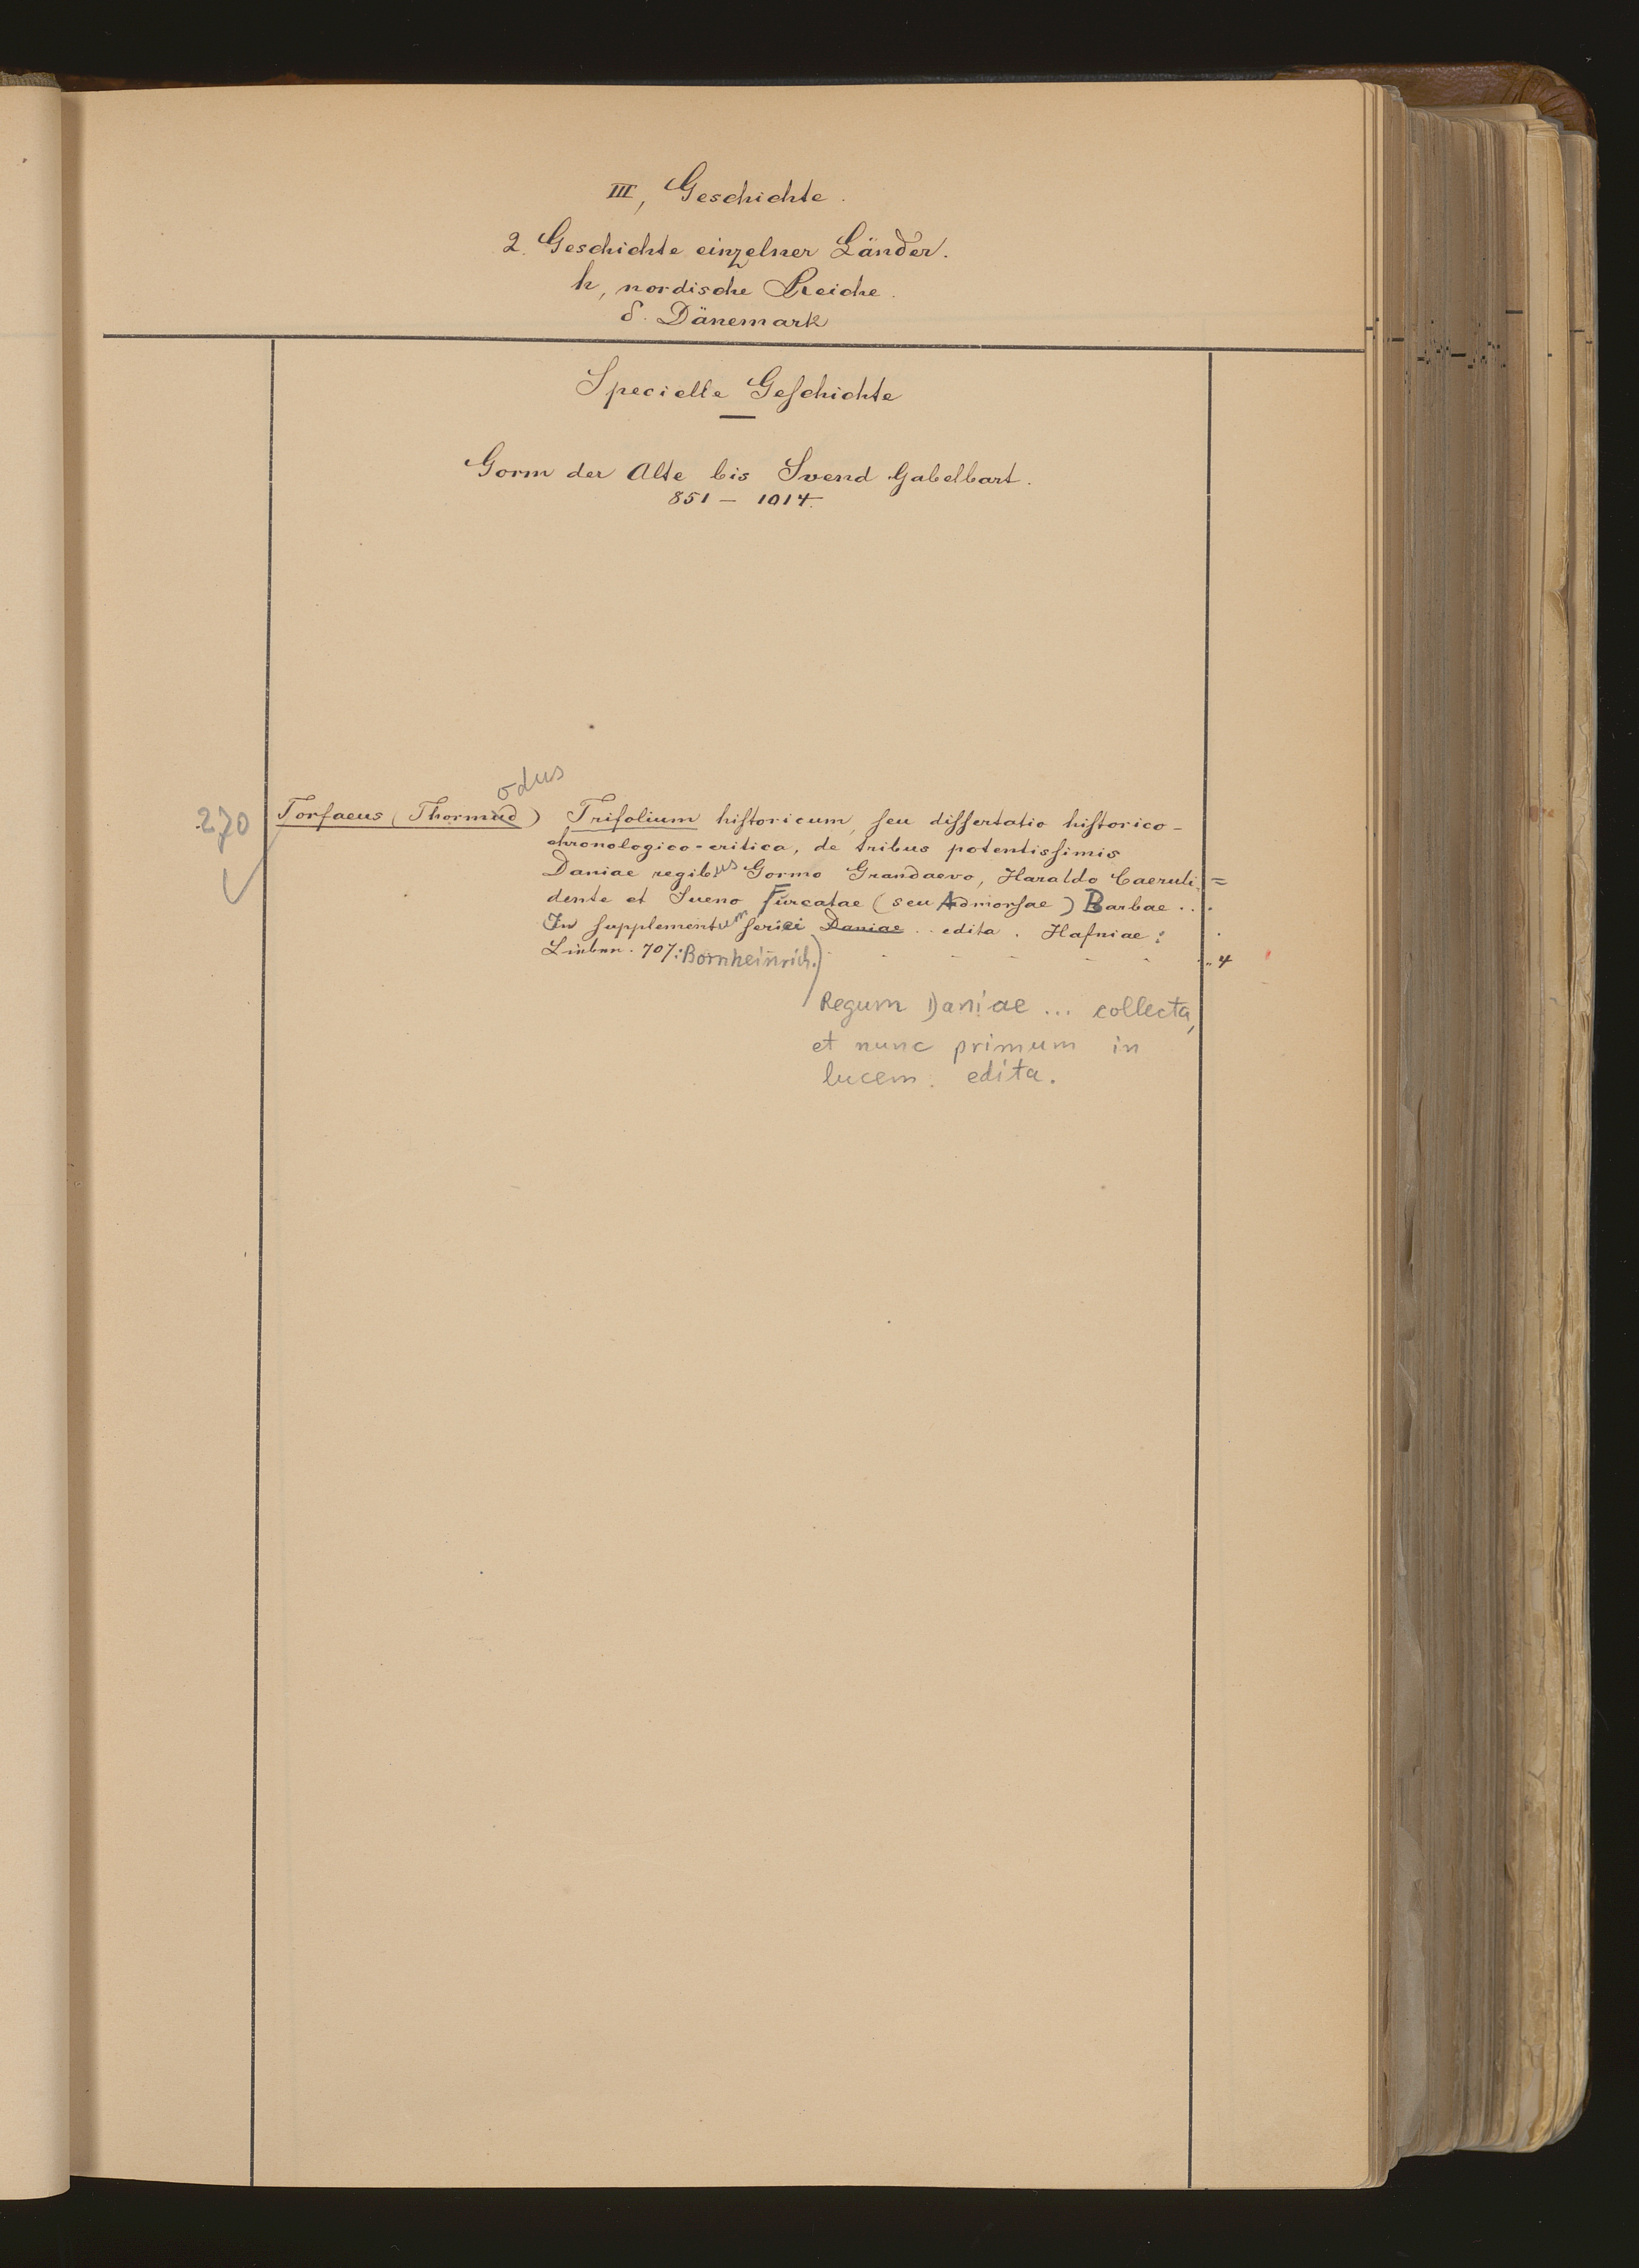 III, Geschichte.
2. Geschichte einzelner Länder.
h, nordische Reiche.
δ. Dänemark
Specielle Geſchichte
Gorm der Alte bis Svend Gabelbart.
851 – 1014.
odus
270 Torfaeus (Thormud) Trifolium hiſtoricum, ſeu diſſertatio hiſtorico-
chronologico-critica, de tribus potentisſimis
Daniae regibus Gormo Grandaevo, Haraldo Caeruli =
dente et Sueno Furcatae (seu Admorſae) Barbae ...
In ſupplementum ſeriei Daniae .. edita. Hafniae:
707: Bornheinrich.) 4
Regum Daniae ... collecta,
et nunc primum in
lucem. edita.